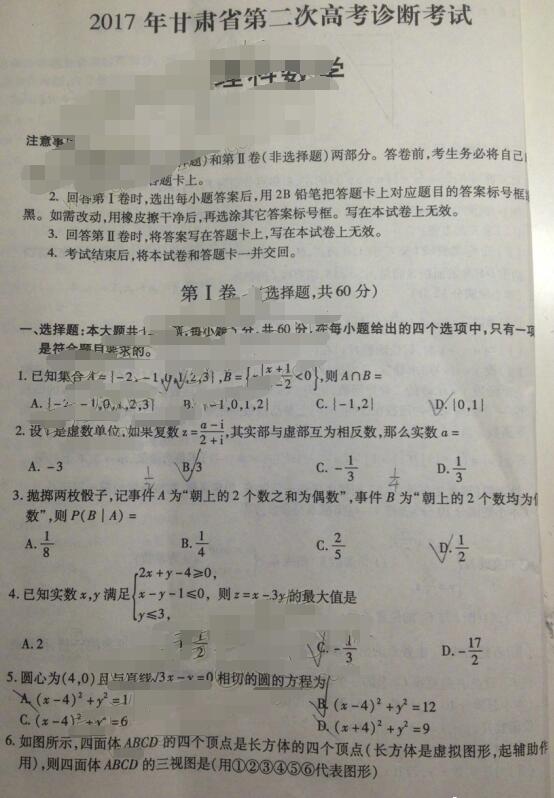 2017年甘肃省第二次高考诊断考试
理科数学
注意事
题)和第Ⅱ卷(非选择题)两部分。答卷前,考生务必将自己
题卡上。
2. 回答第Ⅰ卷时,选出每小题答案后,用2B铅笔把答题卡上对应题目的答案标号框
黑。如需改动,用橡皮擦干净后,再选涂其它答案标号框。写在本试卷上无效。
3. 回答第Ⅱ卷时,将答案写在答题卡上,写在本试卷上无效。
4. 考试结束后,将本试卷和答题卡一并交回。
第Ⅰ卷 (选择题,共60分)
一、选择题:本大题共 题,每小题5分,共60分,在每小题给出的四个选项中,只有一项
是符合题目要求的。
1. 已知集合A={-2,-1,0,1,2,3},B={ x+1/ -2<0},则A∩B=
A. {-2,-1,0,1,2,3} B. -1,0,1,2} C. {-1,2} D. {0,1}
2. 设i是虚数单位,如果复数z=(a-i)/(2+i),其实部与虚部互为相反数,那么实数a=
A. -3 B. 3 C. -1/3 D. 1/3
3. 抛掷两枚骰子,记事件A为“朝上的2个数之和为偶数”,事件B为“朝上的2个数均为
数”,则P(B|A)=
A. 1/8 B. 1/4 C. 2/5 D. 1/2
4. 已知实数x,y满足{2x+y-4≥0, x-y-1≤0, y≤3, 则z=x-3y的最大值是
A. 2 1/2 C. -1/3 D. -17/2
5. 圆心为(4,0)且与直线√3x-y=0相切的圆的方程为
A. (x-4)²+y²=1 B. (x-4)²+y²=12
C. (x-4)²+y²=6 D. (x+4)²+y²=9
6. 如图所示,四面体ABCD的四个顶点是长方体的四个顶点(长方体是虚拟图形,起辅助作
用),则四面体ABCD的三视图是(用①②③④⑤⑥代表图形)